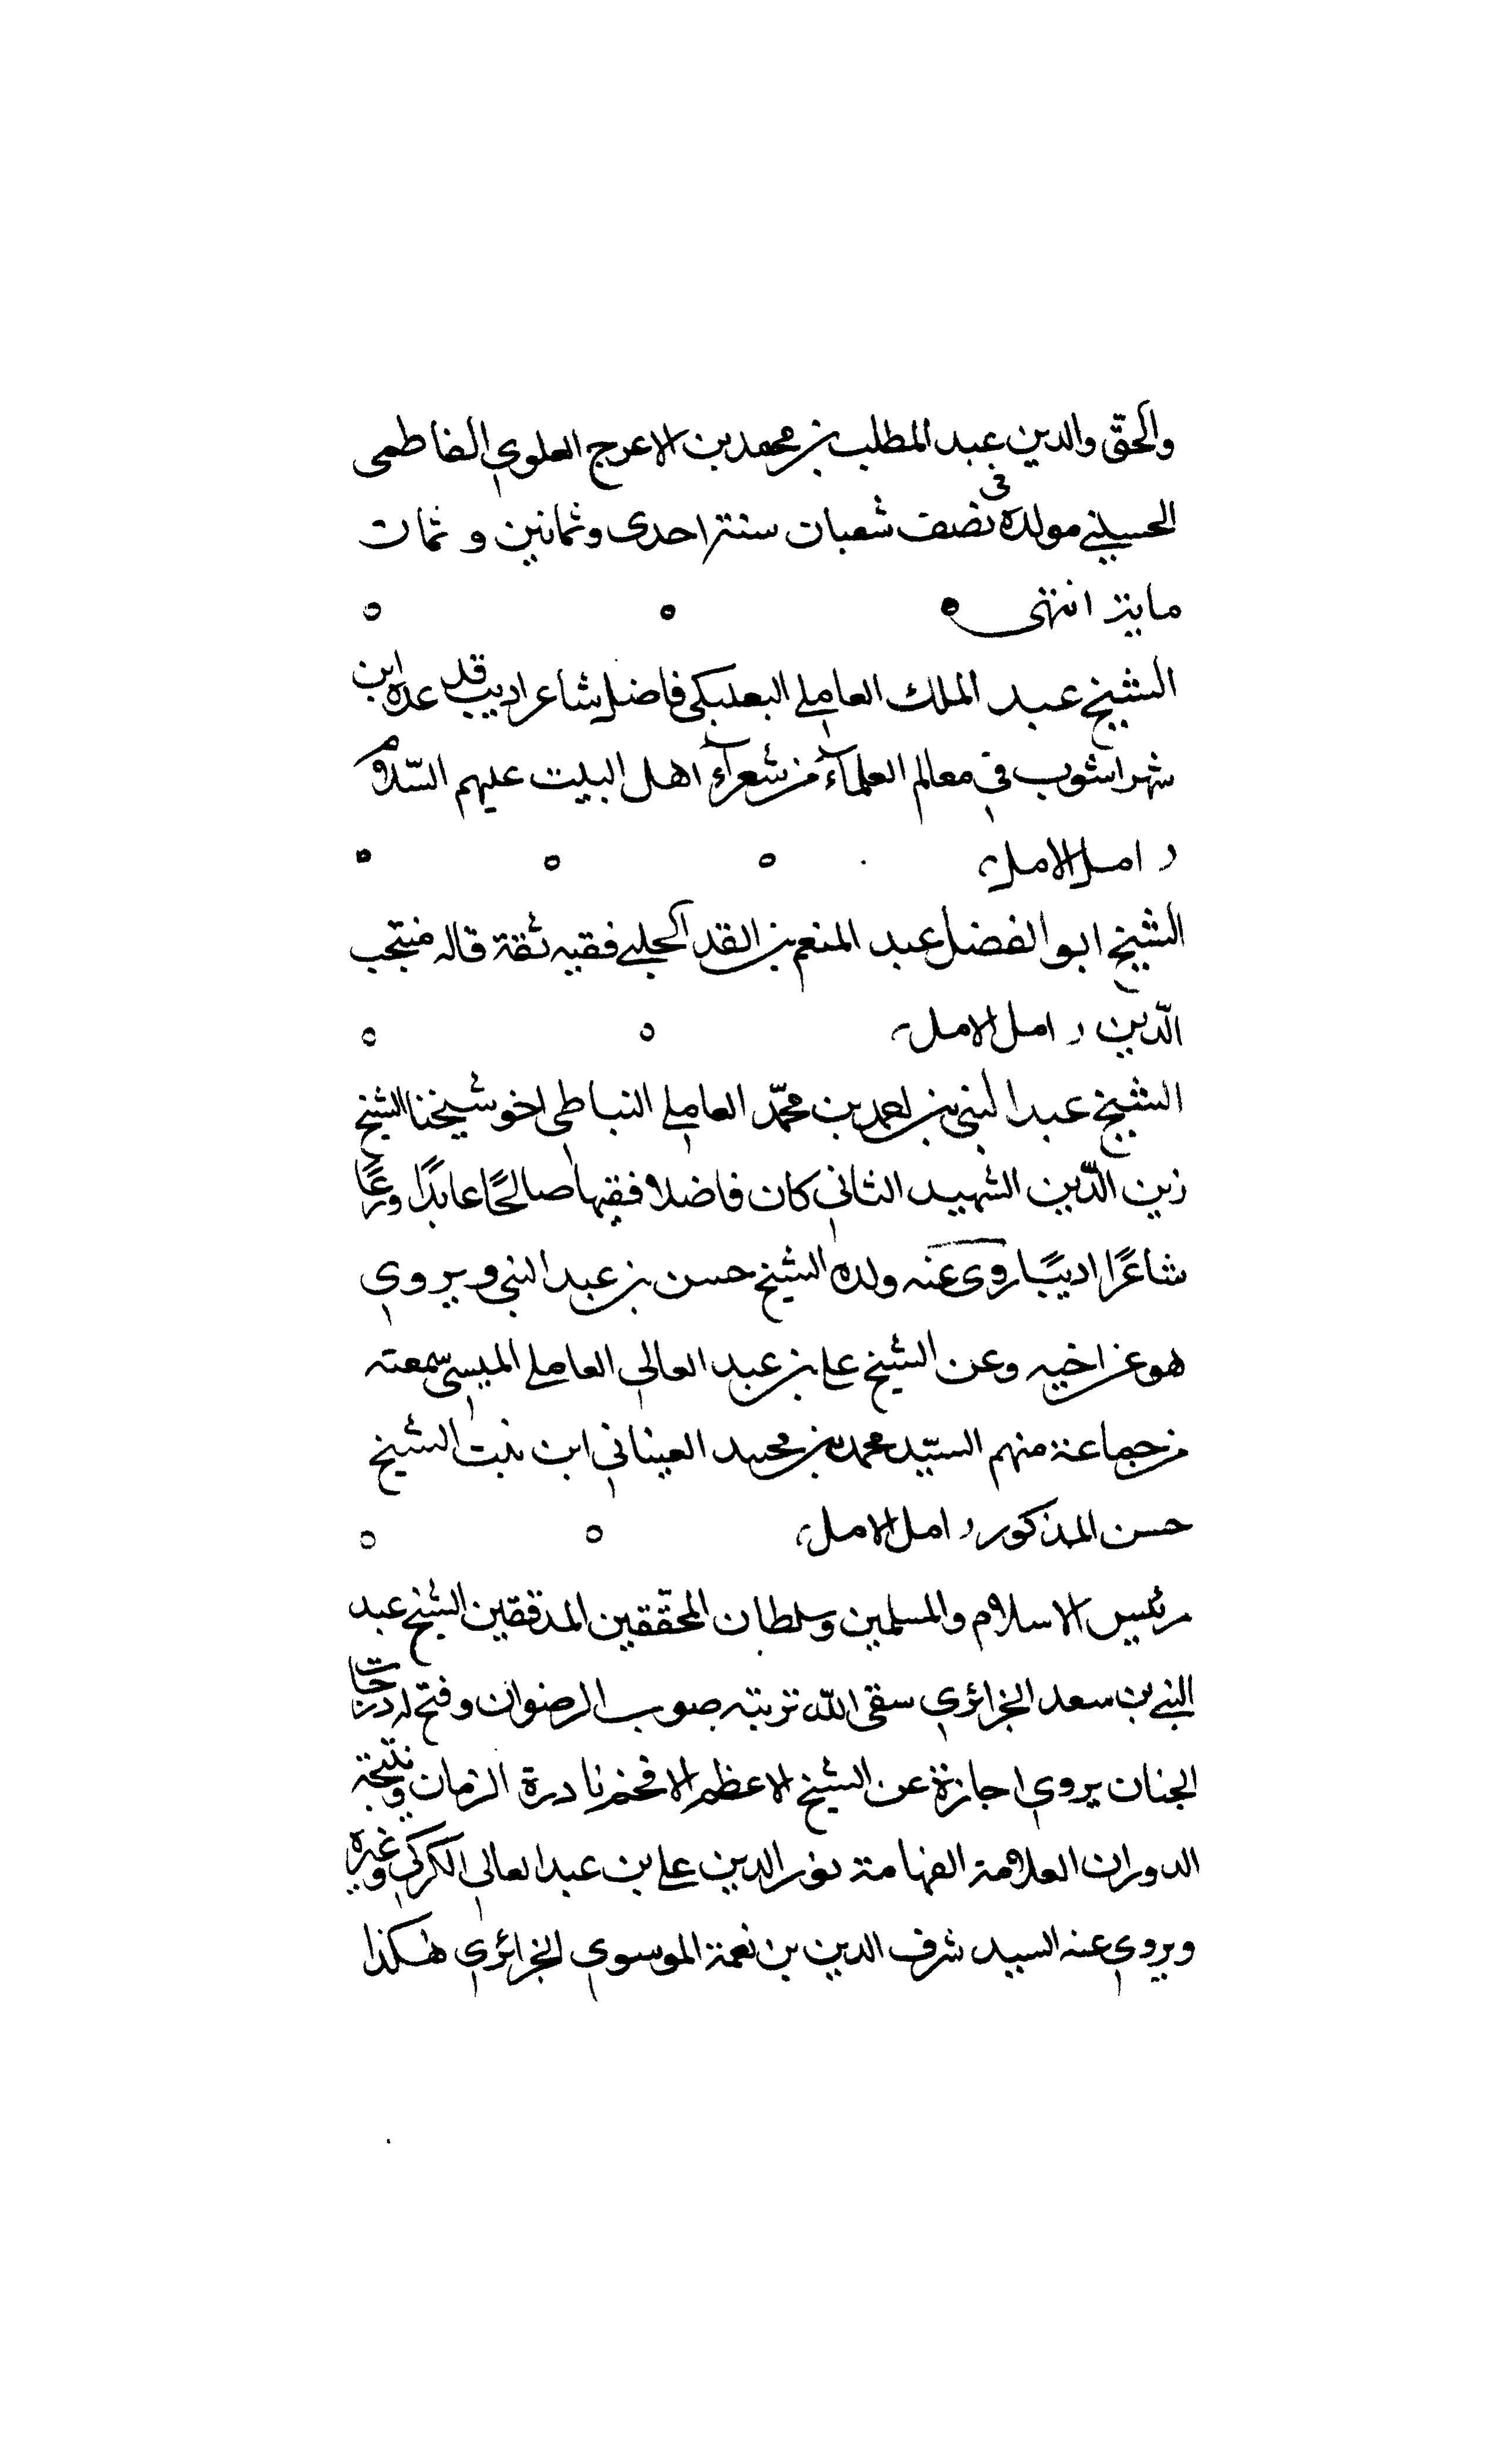 والحقّ والدين عبد المطلب بن محمد بن الاعرج العلوي الفاطمى
الحسيني مولده فى نصف شعبان سنة احدى وثمانين و ثمان
مائة انتهى
الشيخ عبد الملك العاملي البعلبكى فاضل شاعر اديب قد عده ابن
شهراشوب في معالم العلمآء من شعرآء اهل البيت عليهم السّلام
ر امل الامل
الشيخ ابو الفضل عبد المنعم بن القد الحلبي فقيه ثقة قاله منتجب
الدّين ر امل الامل
الشيخ عبد النبى بن احمد بن محمّد العاملي النباطي اخو شيخنا الشيخ
زين الدّين الشهيد الثاني كان فاضلا فقيها صالحًا عابدًا ورعًا
شاعرًا اديبًا روى عنه ولده الشيخ حسن بن عبد النبى ويروي
هو عن اخيه وعن الشيخ علي بن عبد العالي العاملي الميسي سمعته
من جماعة منهم السيّد محمد بن محمد العيناثي ابن بنت الشيخ
حسن المذكور ر امل الامل
رئيس الاسلام والمسلمين وسلطان المحقّقين المدققين الشيخ عبد
النبي بن سعد الجزائري سقى الله تربته صوب الرضوان وفتح له درجات
الجنان يروي اجازة عن الشيخ الاعظم الافخم نادرة الزمان ونتيجة
الدوران العلامة الفهامة نور الدين علي بن عبد العالي الكركي وغيره
ويروي عنه السيد شرف الدين بن نعمة الموسوي الجزائري هكذا